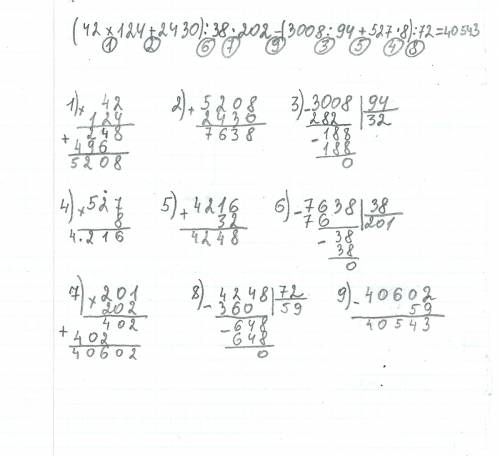 (42 × 124 + 2430) : 38 · 202 - (3008 : 94 + 527 · 8) : 72 = 40543
1 2 6 7 9 3 5 4 8
1) × 42
124
+ 248
496
5208
2) + 5208
2430
7638
3) - 3008 | 94
282 32
- 188
188
0
4) × 527
8
4216
5) + 4216
32
4248
6) - 7638 | 38
76 201
- 38
38
0
7) × 201
202
+ 402
402
40602
8) - 4248 | 72
360 59
- 648
648
0
9) - 40602
59
40543